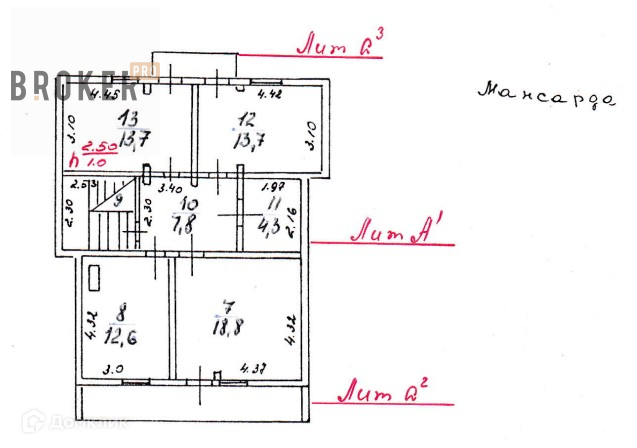 Лит а³
BROKER PRO
Мансарда
4.45
4.42
3.10
13
13,7
12
13,7
3.10
h 2.50
1.0
2.53
3.40
1.97
2.30
9
2.30
10
7,8
11
4,3
2.16
Лит А¹
4.32
8
12,6
7
18,8
4.32
3.0
4.37
Лит а²
Домклик